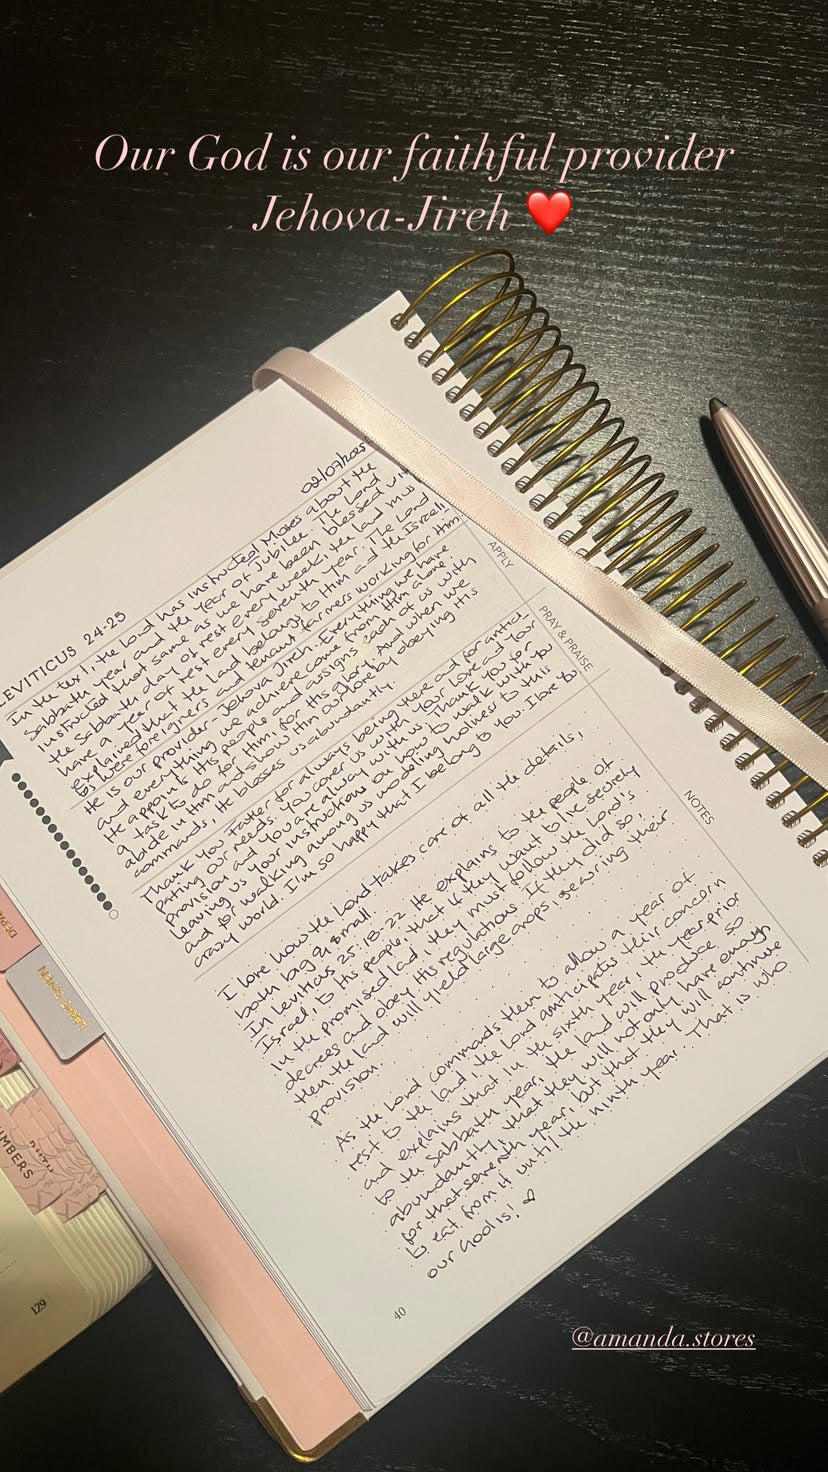 Our God is our faithful provider
Jehova-Jireh ❤️
02/07/2025
LEVITICUS 24-25
In the text, the Lord has instructed Moses about the
Sabbath year and the Year of Jubilee. The Lord
instructed that same as we have been blessed
the Sabbath day of rest every week, the land mus
have a year of rest every seventh year. The Lord
explained that the land belongs to Him and the Israeli
tes were foreigners and tenant farmers working for Him.
APPLY
He is our provider - Jehova Jireh. Everything we have
and everything we achieve come from Him alone.
He appoints His people and assigns each of us with
a task to do for Him, for His glory. And when we
abide in Him and show Him our love by obeying His
commands, He blesses us abundantly.
PRAY & PRAISE
Thank you Father for always being there and for antici-
pating our needs. You cover us with your love and your
provision and you are always with us. Thank you for
leaving us your instructions on how to walk with you
and for walking among us modeling holiness to this
crazy world. I'm so happy that I belong to you. I love to
NOTES
I love how the Lord takes care of all the details,
both big & small.
In Leviticus 25:18-22 He explains to the people of
Israel, to His people, that if they want to live securely
in the promised land, they must follow the Lord's
decrees and obey His regulations. If they did so,
then the land will yield large crops, securing their
provision.
As the Lord commands them to allow a year of
rest to the land, the Lord anticipates their concern
and explains that in the sixth year, the year prior
to the Sabbath year, the land will produce so
abundantly, that they will not only have enough
for that seventh year, but that they will continue
to eat from it until the ninth year. That is who
our God is! ♡
40
NUMBERS
129
@amanda.stores